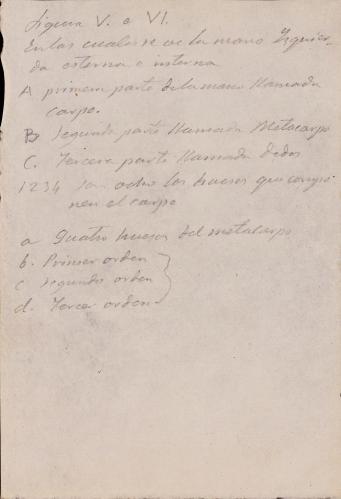 Figura V. e VI.
En las cuales se ve la mano Izquier-
da esterna e interna
A primera parte de la mano llamada
carpo.
B Segunda parte llamada Metacarpo
C. Tercera parte llamada dedos
1 2 3 4 son ocho los huesos que compo
nen el carpo
a Quatro huesos del metacarpo
b. Primer orden
c segundo orden
d. Tercer orden